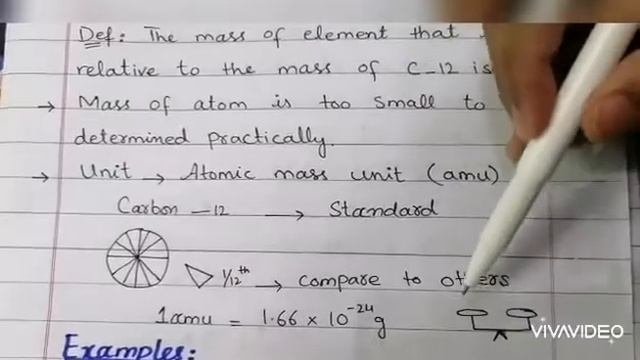 Def: The mass of element that
relative to the mass of C-12 is
→ Mass of atom is too small to
determined practically.
→ Unit → Atomic mass unit (amu)
Carbon -12 → Standard
1/12th → compare to others
1amu = 1.66 × 10⁻²⁴g
VIVAVIDEO
Examples: